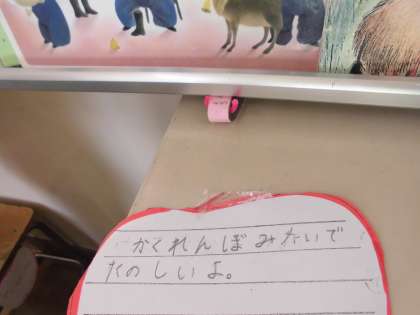 かくれんぼみたいで
たのしいよ。